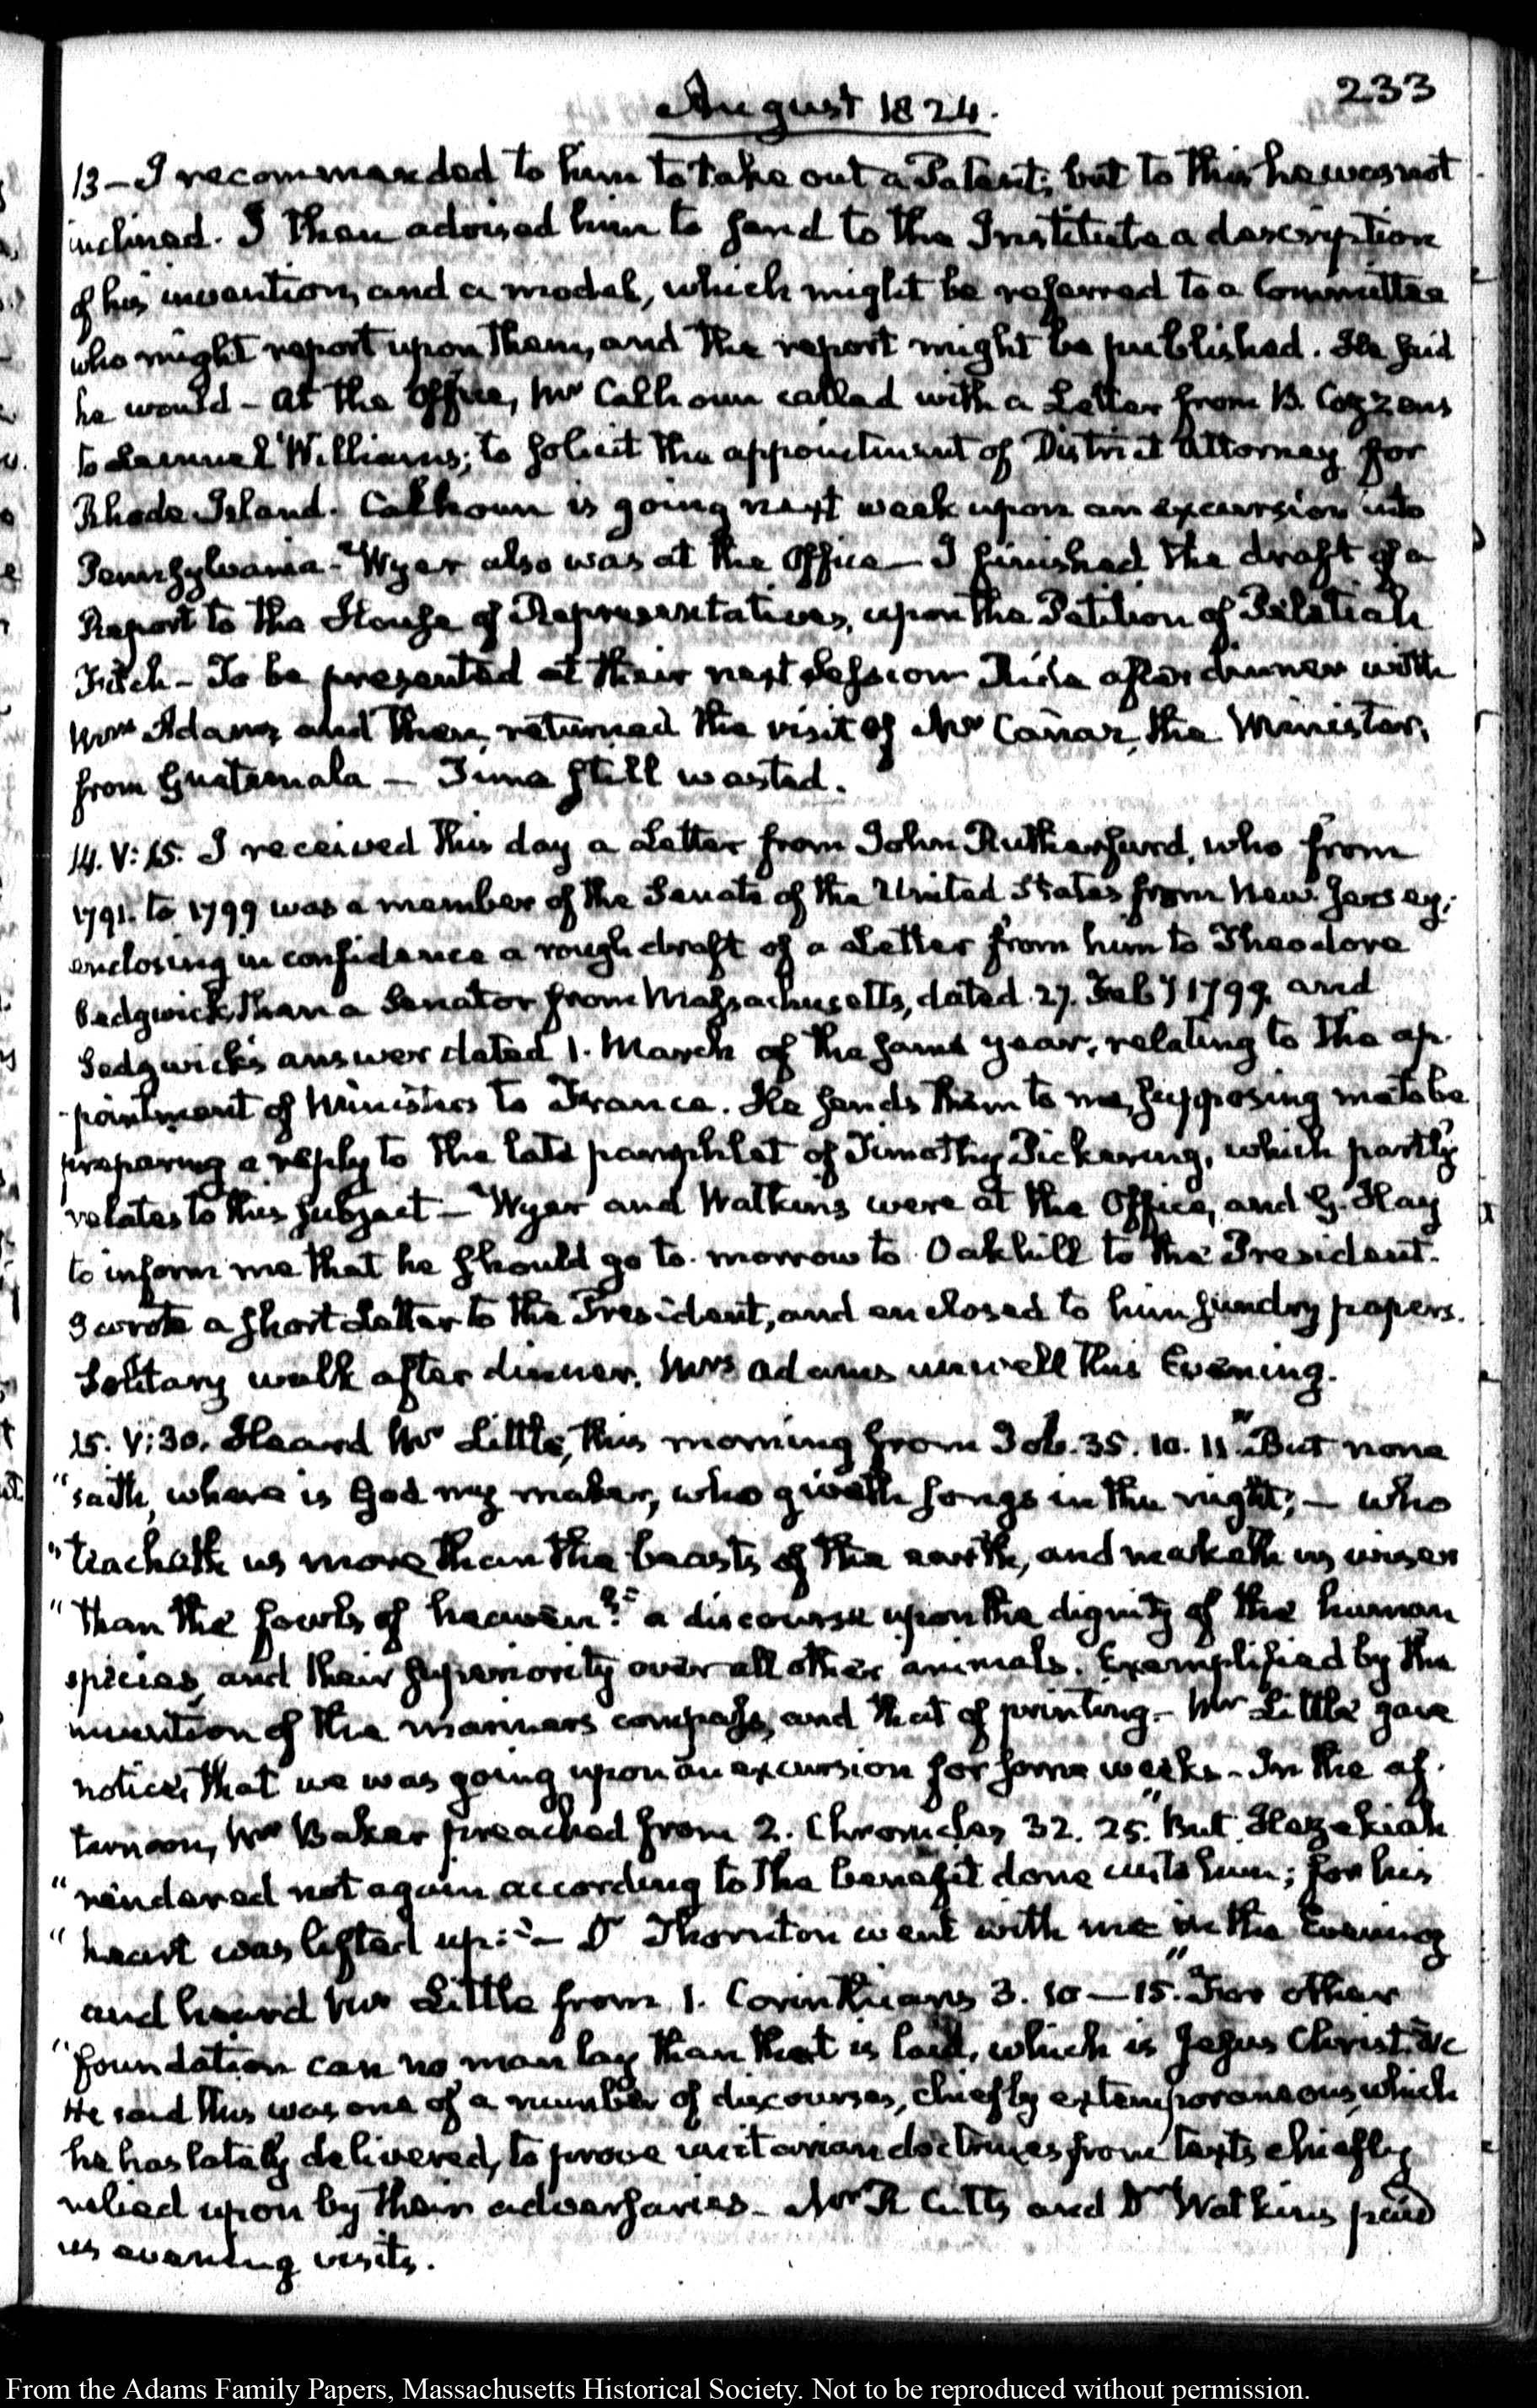 233
August 1824.
13 – I recommended to him to take out a Patent; but to this he was not
inclined. I then advised him to send to the Institute a description
of his invention, and a model, which might be referred to a Committee
who might report upon them, and the report might be published. He said
he would – At the Office, Mr Calhoun called with a Letter from B. Cozzens
to Lemuel Williams; to solicit the appointment of District Attorney for
Rhode Island. Calhoun is going next week upon an excursion into
Pennsylvania – Wyer also was at the Office – I finished the draft of a
Report to the House of Representatives, upon the Petition of Pelatiah
Fitch – To be presented at their next Session Ride after dinner with
Mrs Adams and then returned the visit of Mr Cañaz, the Minister,
from Guatemala – Time still wasted.
14. V: 15. I received this day a Letter from John Rutherfurd, who from
1791. to 1799 was a member of the Senate of the United States from New Jersey;
enclosing in confidence a rough draft of a Letter from him to Theodore
Sedgwick, then a Senator from Massachusetts, dated 27. Feby 1799. and
Sedgwick's answer dated 1. March of the same year, relating to the ap-
-pointment of Ministers to France. He sends them to me, supposing me to be
preparing a reply to the late pamphlet of Timothy Pickering, which partly
relates to this subject – Wyer and Watkins were at the Office, and G. Hay
to inform me that he should go to-morrow to Oakhill to the President.
I wrote a short Letter to the President, and enclosed to him sundry papers.
Solitary walk after dinner. Mrs Adams unwell this Evening.
15. V: 30. Heard Mr Little, this morning from Job. 35. 10. 11 "But none
"saith, where is God my maker, who giveth songs in the night; – who
"teacheth us more than the beasts of the earth, and maketh us wiser
"than the fowls of heaven?" a discourse upon the dignity of the human
species, and their superiority over all other animals. Exemplified by the
invention of the mariners compass, and that of printing – Mr Little gave
notice, that we was going upon an excursion for some weeks – In the af-
ternoon, Mr Baker preached from 2. Chronicles 32. 25. "But Hezekiah
"rendered not again according to the benefit done unto him; for his
"heart was lifted up:" – Dr Thornton went with me in the Evening
and heard Mr Little from 1. Corinthians 3. 10 – 15. "For other
"foundation can no man lay than that is laid, which is Jesus Christ. &c
He said this was one of a number of discourses, chiefly extemporaneous, which
he has lately delivered, to prove unitarian doctrines from texts chiefly
relied upon by their adversaries – Mr R Cutts and Dr Watkins paid
us evening visits.
From the Adams Family Papers, Massachusetts Historical Society. Not to be reproduced without permission.